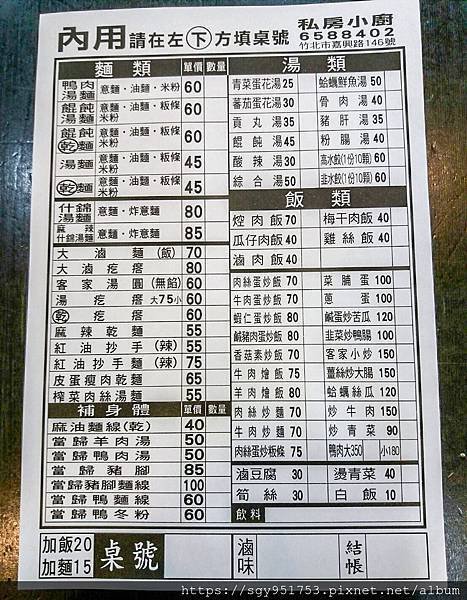 內用請在左下方填桌號
私房小廚
6588402
竹北市嘉興路146號
麵類 單價 數量
鴨肉湯麵 意麵・油麵・米粉 60
餛飩湯麵 意麵・油麵・粄條 米粉 60
餛飩乾麵 意麵・油麵・粄條 米粉 60
湯麵 意麵・油麵・粄條 米粉 45
乾麵 意麵・油麵・粄條 米粉 45
什錦湯麵 意麵・炸意麵 80
麻辣什錦湯麵 意麵・炸意麵 85
大滷麵(飯) 70
大滷疙瘩 80
客家湯圓(無餡) 60
湯疙瘩 大75小 60
乾疙瘩 60
麻辣乾麵 55
紅油抄手(辣) 55
紅油抄手麵(辣) 75
皮蛋瘦肉乾麵 65
榨菜肉絲湯麵 55
補身體 單價 數量
麻油麵線(乾) 40
當歸羊肉湯 50
當歸鴨肉湯 50
當歸豬腳 85
當歸豬腳麵線 100
當歸鴨麵線 60
當歸鴨冬粉 60
湯類
青菜蛋花湯 25 蛤蠣鮮魚湯 50
蕃茄蛋花湯 30 骨肉湯 40
貢丸湯 35 豬肝湯 35
餛飩湯 45 粉腸湯 40
酸辣湯 30 高水餃(1份10顆) 60
綜合湯 50 韭水餃(1份10顆) 60
飯類
焢肉飯 70 梅干肉飯 40
瓜仔肉飯 40 雞絲飯 40
滷肉飯 40
肉絲蛋炒飯 70 菜脯蛋 100
牛肉蛋炒飯 70 蔥蛋 100
蝦仁蛋炒飯 80 鹹蛋炒苦瓜 120
鹹豬肉蛋炒飯 80 韭菜炒鴨腸 100
香菇素炒飯 70 客家小炒 150
牛肉燴飯 75 薑絲炒大腸 150
羊肉燴飯 80 蛤蠣絲瓜 120
肉絲炒麵 70 炒牛肉 150
牛肉炒麵 70 炒青菜 90
肉絲蛋炒粄條 75 鴨肉大350 小180
滷豆腐 30 燙青菜 40
筍絲 30 白飯 10
飲料
加飯20
加麵15
桌號
滷味
結帳
https://sgy951753.pixnet.net/album